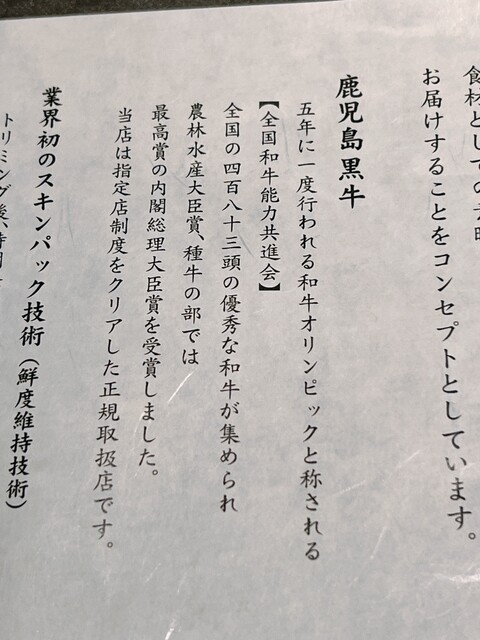 食材としての
お届けすることをコンセプトとしています。
鹿児島黒牛
五年に一度行われる和牛オリンピックと称される
【全国和牛能力共進会】
全国の四百八十三頭の優秀な和牛が集められ
農林水産大臣賞、種牛の部では
最高賞の内閣総理大臣賞を受賞しました。
当店は指定店制度をクリアした正規取扱店です。
業界初のスキンパック技術（鮮度維持技術）
トリミング後、